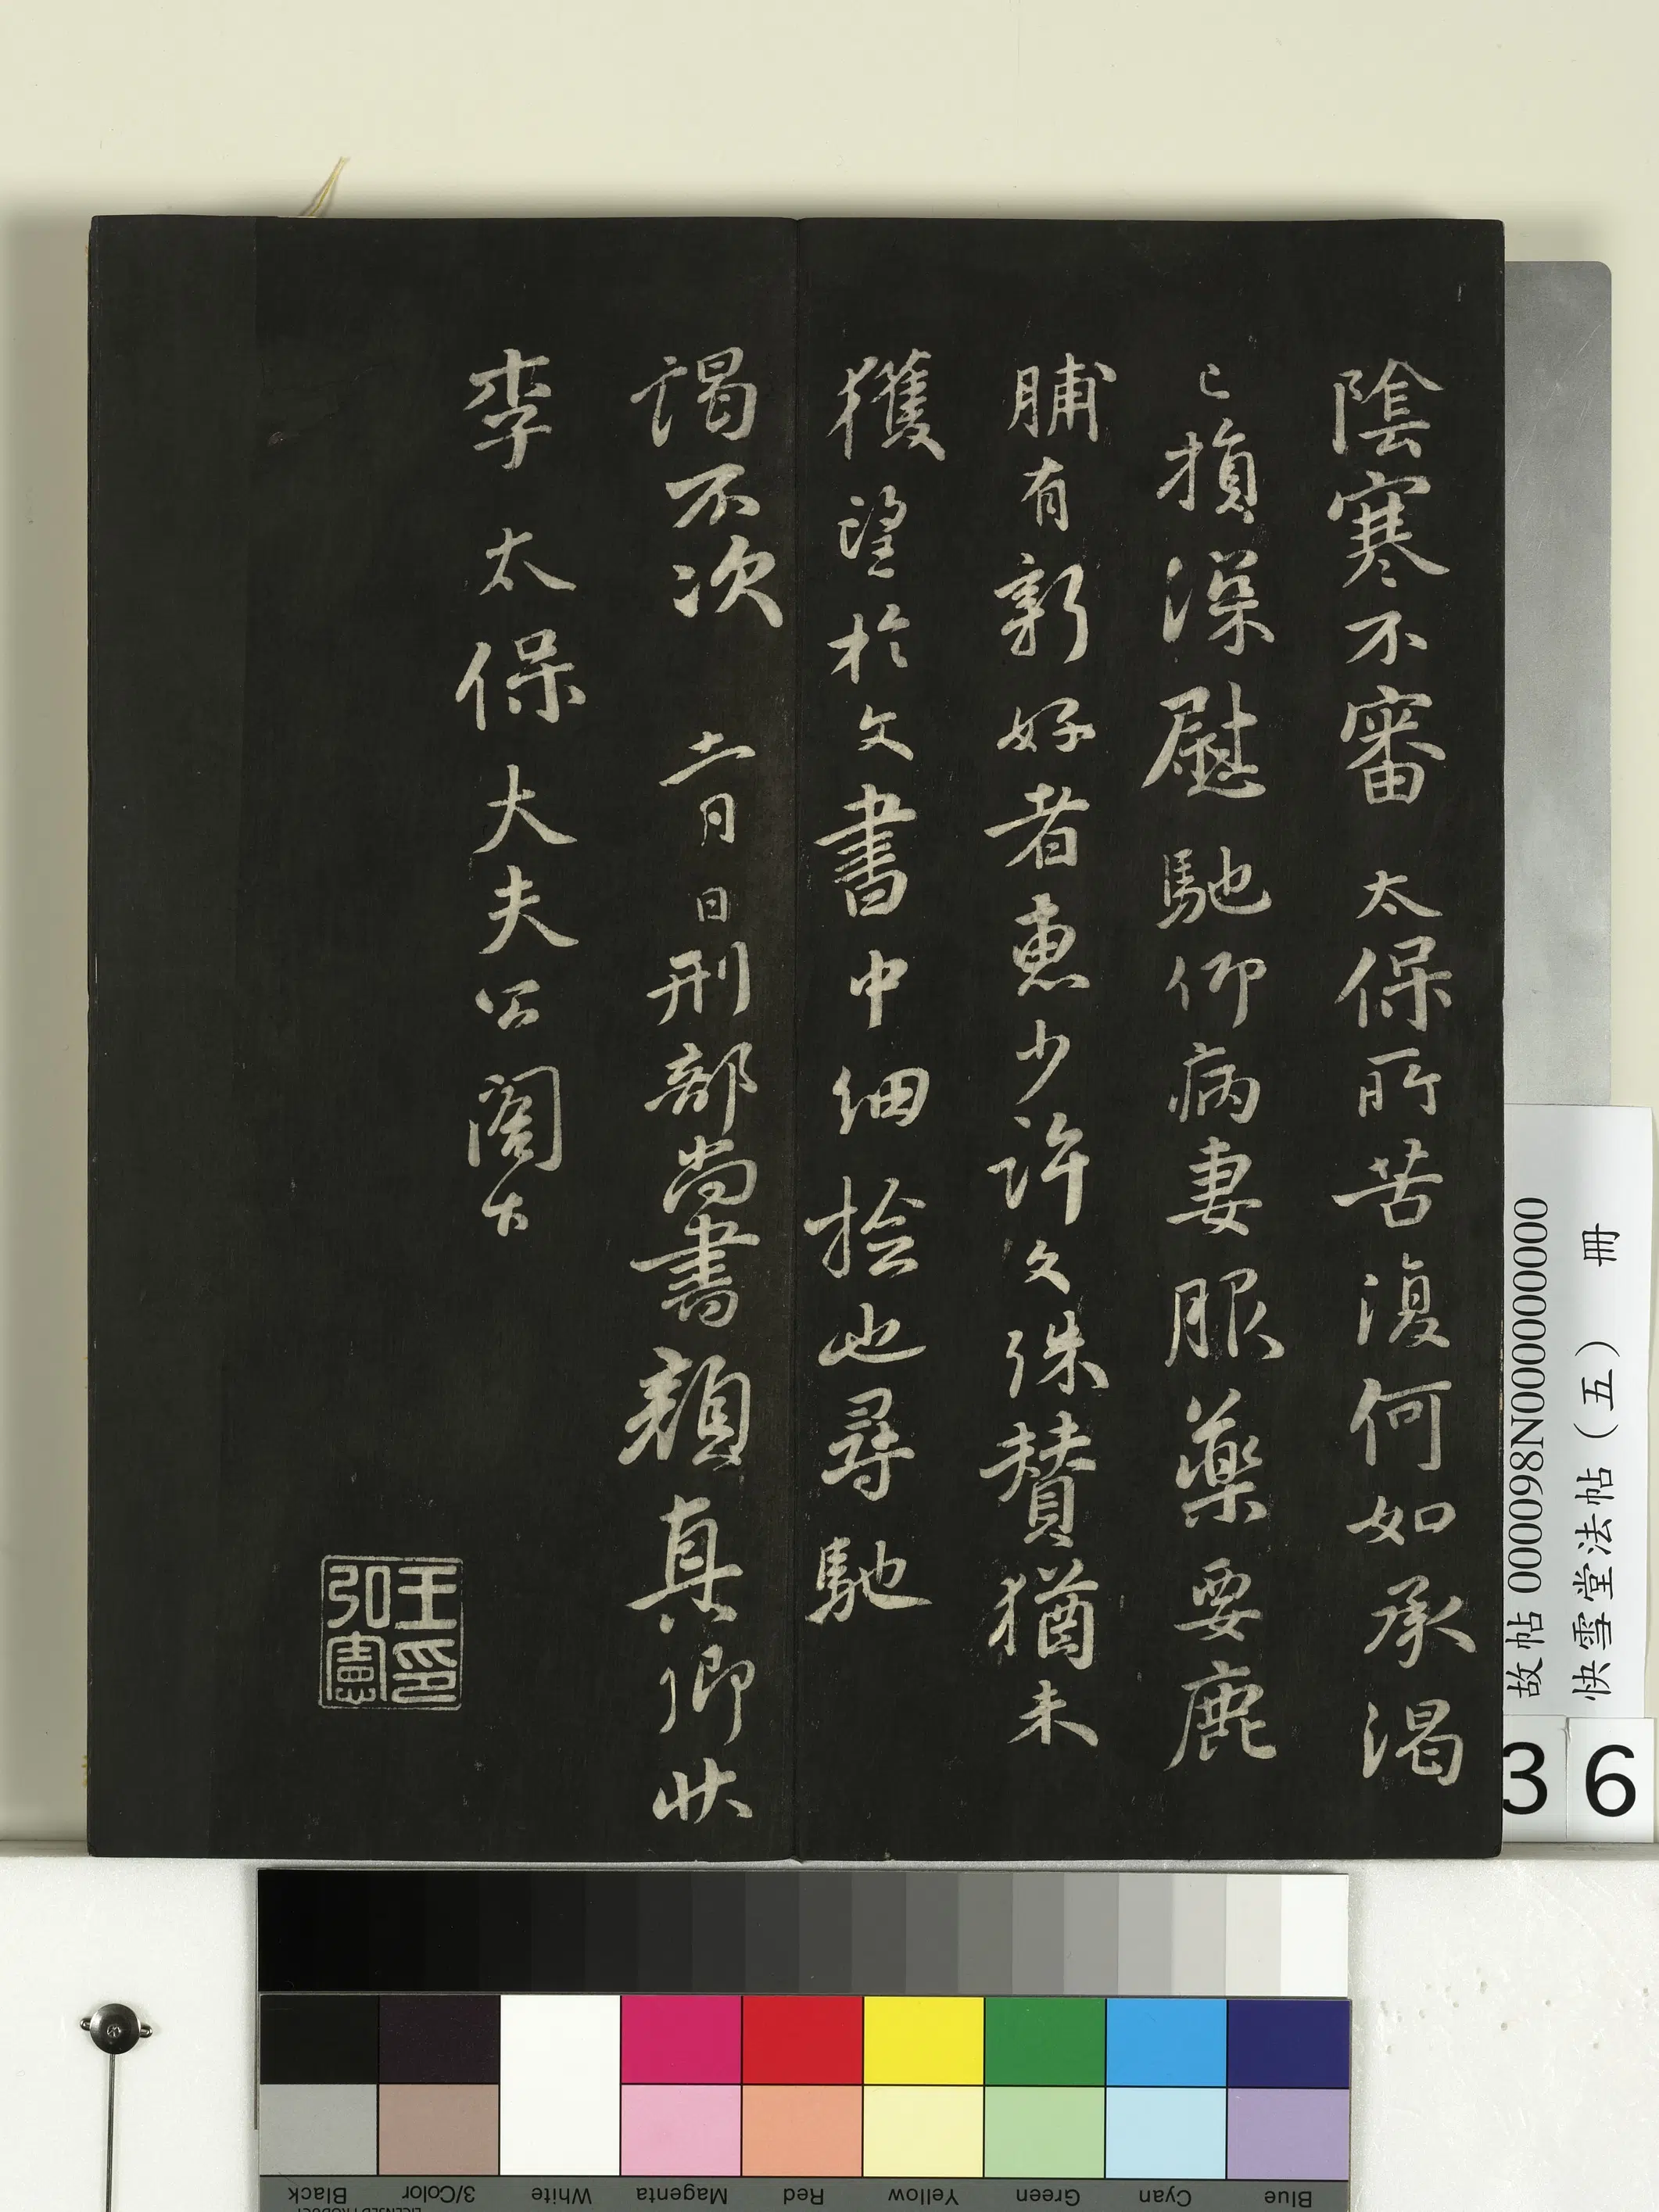 陰寒不審 太保所苦復何如承渴
已損深慰馳仰病妻服藥要鹿
脯有新好者惠少許文殊賛猶未
獲望於文書中細撿也尋馳
謁不次 十一月 日刑部尚書顏真卿狀
李太保大夫公閤下
王印弘憲
故帖 000098N000000000
快雪堂法帖（五） 冊
36
Black
3/Color
White
Magenta
Red
Yellow
Green
Cyan
Blue